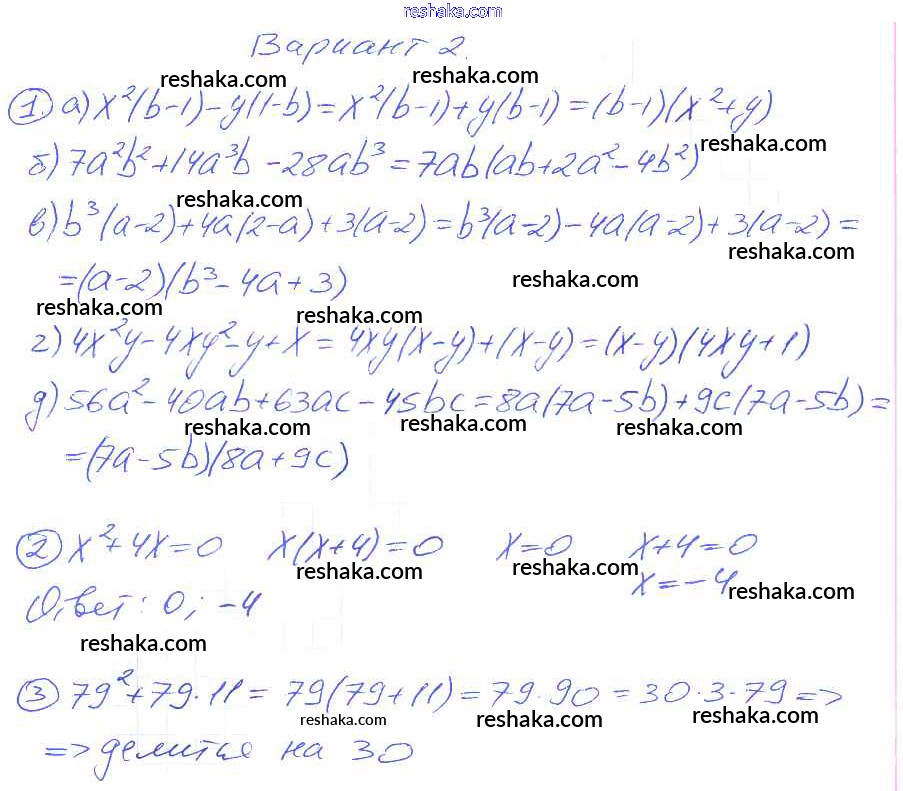 reshaka.com
Вариант 2.
reshaka.com reshaka.com
① а) x²(b-1)-y(1-b)=x²(b-1)+y(b-1)=(b-1)(x²+y)
reshaka.com
б) 7a²b²+14a³b-28ab³=7ab(ab+2a²-4b²)
reshaka.com
в) b³(a-2)+4a(2-a)+3(a-2)=b³(a-2)-4a(a-2)+3(a-2)=
reshaka.com
=(a-2)(b³-4a+3)
reshaka.com
reshaka.com reshaka.com
г) 4x²y-4xy²-y+x=4xy(x-y)+(x-y)=(x-y)(4xy+1)
д) 56a²-40ab+63ac-45bc=8a(7a-5b)+9c(7a-5b)=
reshaka.com reshaka.com reshaka.com
=(7a-5b)(8a+9c)
② x²+4x=0 x(x+4)=0 x=0 x+4=0
reshaka.com reshaka.com
x=-4 reshaka.com
Ответ: 0; -4
reshaka.com
③ 79²+79·11=79(79+11)=79·90=30·3·79=>
reshaka.com reshaka.com reshaka.com
=> делится на 30